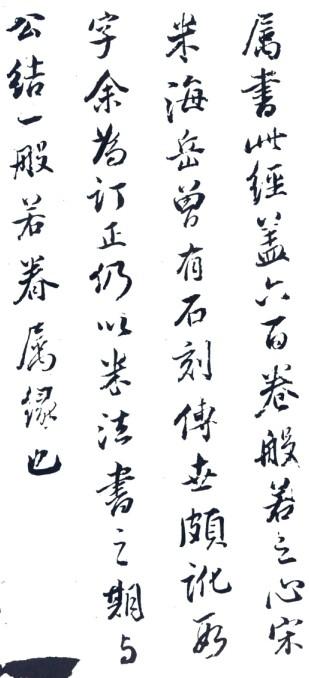 属書此經蓋六百卷般若之心宋
米海岳曾有石刻傳世頗訛數
字余為訂正仍以米法書之期与
公結一般若眷属緣也